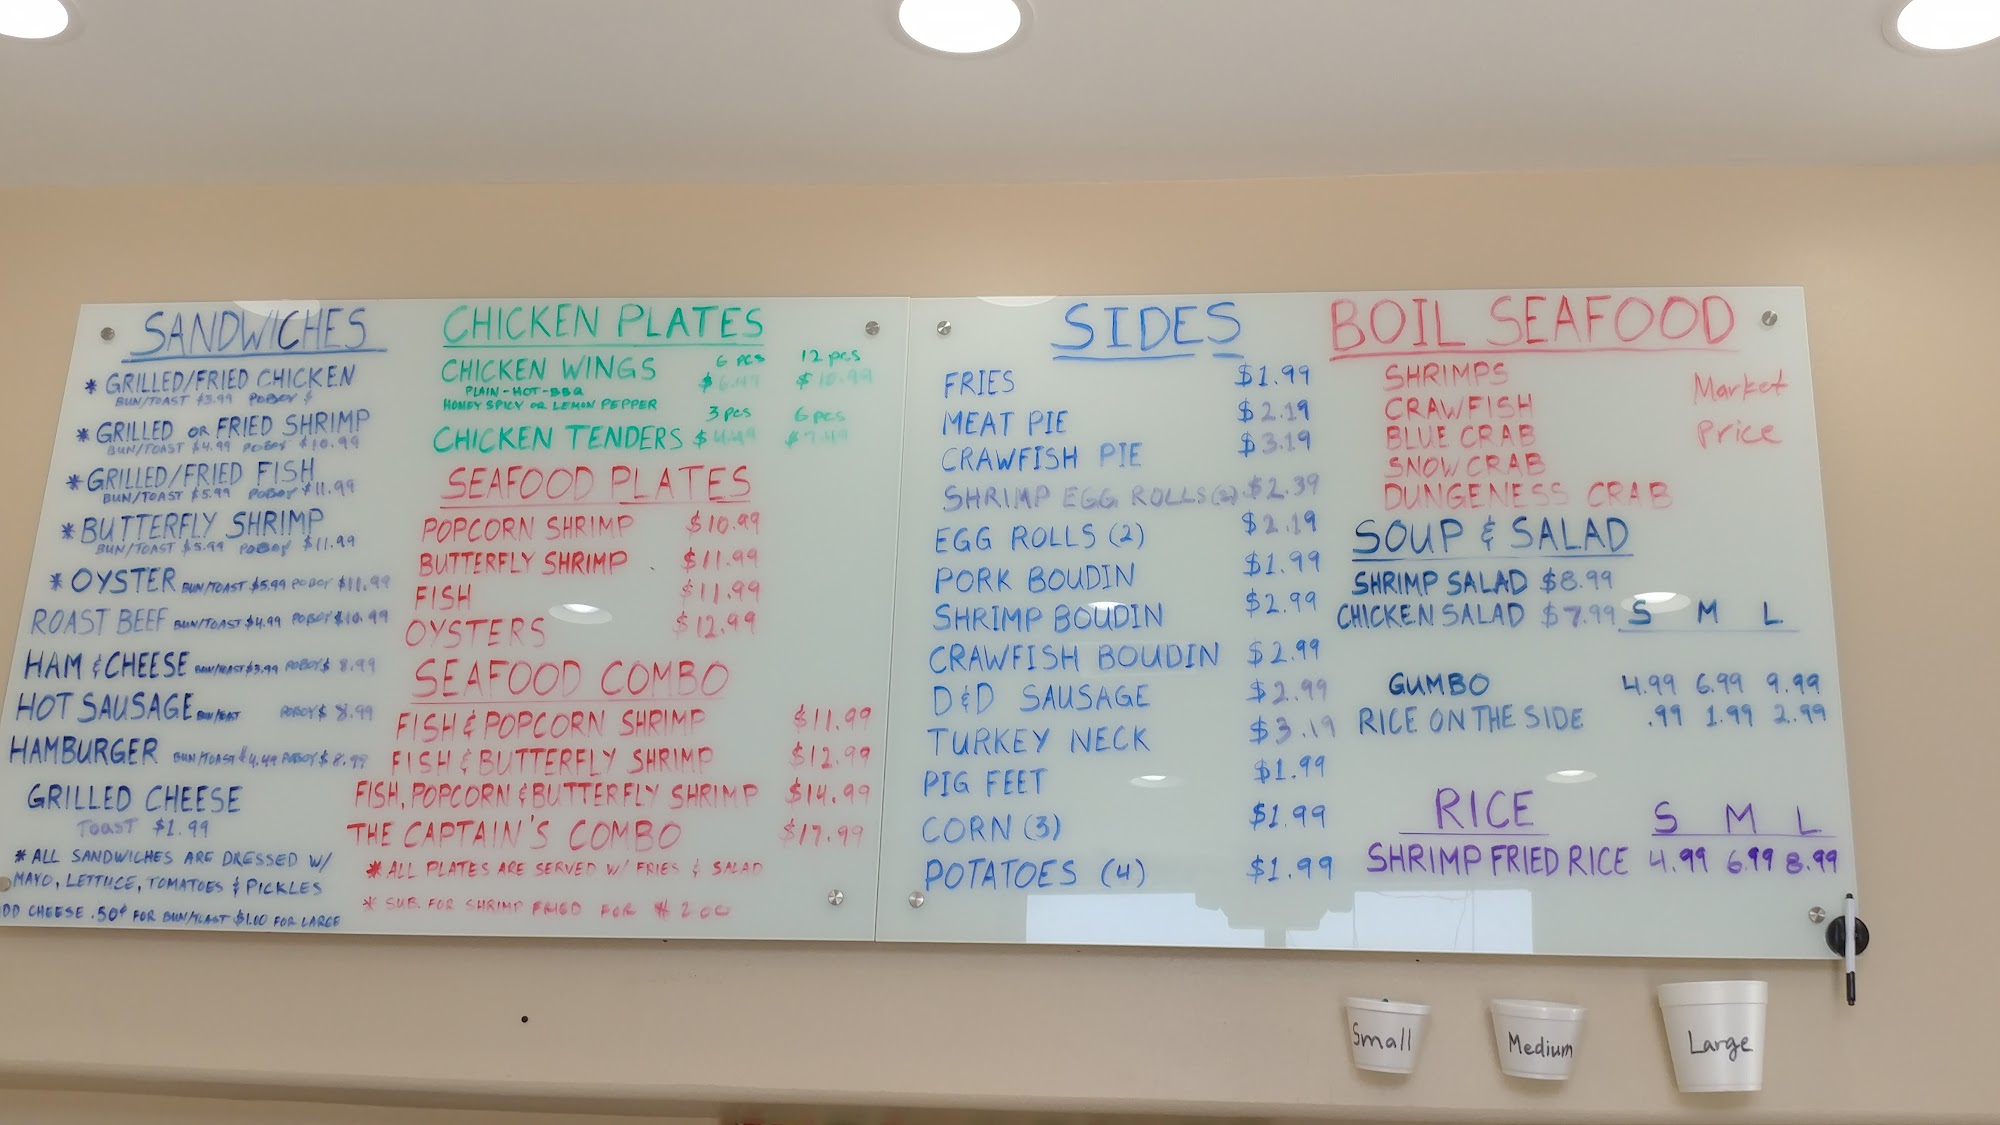 SANDWICHES
* GRILLED/FRIED CHICKEN
BUN/TOAST $3.99 POBOY $
* GRILLED OR FRIED SHRIMP
BUN/TOAST $4.99 POBOY $10.99
* GRILLED/FRIED FISH
BUN/TOAST $5.99 POBOY $11.99
* BUTTERFLY SHRIMP
BUN/TOAST $5.99 POBOY $11.99
* OYSTER BUN/TOAST $5.99 POBOY $11.99
ROAST BEEF BUN/TOAST $4.99 POBOY $10.99
HAM & CHEESE BUN/TOAST $3.99 POBOY $ 8.99
HOT SAUSAGE BUN/TOAST POBOY $ 8.99
HAMBURGER BUN/TOAST $4.49 POBOY $ 8.99
GRILLED CHEESE
TOAST $1.99
* ALL SANDWICHES ARE DRESSED W/
MAYO, LETTUCE, TOMATOES & PICKLES
DD CHEESE .50¢ FOR BUN/TOAST $1.00 FOR LARGE
CHICKEN PLATES
6 pcs 12 pcs
CHICKEN WINGS $6.49 $10.99
PLAIN-HOT-BBQ
HONEY SPICY OR LEMON PEPPER
3 pcs 6 pcs
CHICKEN TENDERS $4.49 $7.49
SEAFOOD PLATES
POPCORN SHRIMP $10.99
BUTTERFLY SHRIMP $11.99
FISH $11.99
OYSTERS $12.99
SEAFOOD COMBO
FISH & POPCORN SHRIMP $11.99
FISH & BUTTERFLY SHRIMP $12.99
FISH, POPCORN & BUTTERFLY SHRIMP $14.99
THE CAPTAIN'S COMBO $17.99
* ALL PLATES ARE SERVED W/ FRIES & SALAD
* SUB. FOR SHRIMP FRIED FOR $ 2.00
SIDES
FRIES $1.99
MEAT PIE $2.19
CRAWFISH PIE $3.19
SHRIMP EGG ROLLS (2) $2.39
EGG ROLLS (2) $2.19
PORK BOUDIN $1.99
SHRIMP BOUDIN $2.99
CRAWFISH BOUDIN $2.99
D&D SAUSAGE $2.99
TURKEY NECK $3.19
PIG FEET $1.99
CORN (3) $1.99
POTATOES (4) $1.99
BOIL SEAFOOD
SHRIMPS
CRAWFISH
BLUE CRAB
SNOW CRAB
DUNGENESS CRAB
Market
Price
SOUP & SALAD
SHRIMP SALAD $8.99
CHICKEN SALAD $7.99
S M L
GUMBO 4.99 6.99 9.99
RICE ON THE SIDE .99 1.99 2.99
RICE S M L
SHRIMP FRIED RICE 4.99 6.99 8.99
Small
Medium
Large